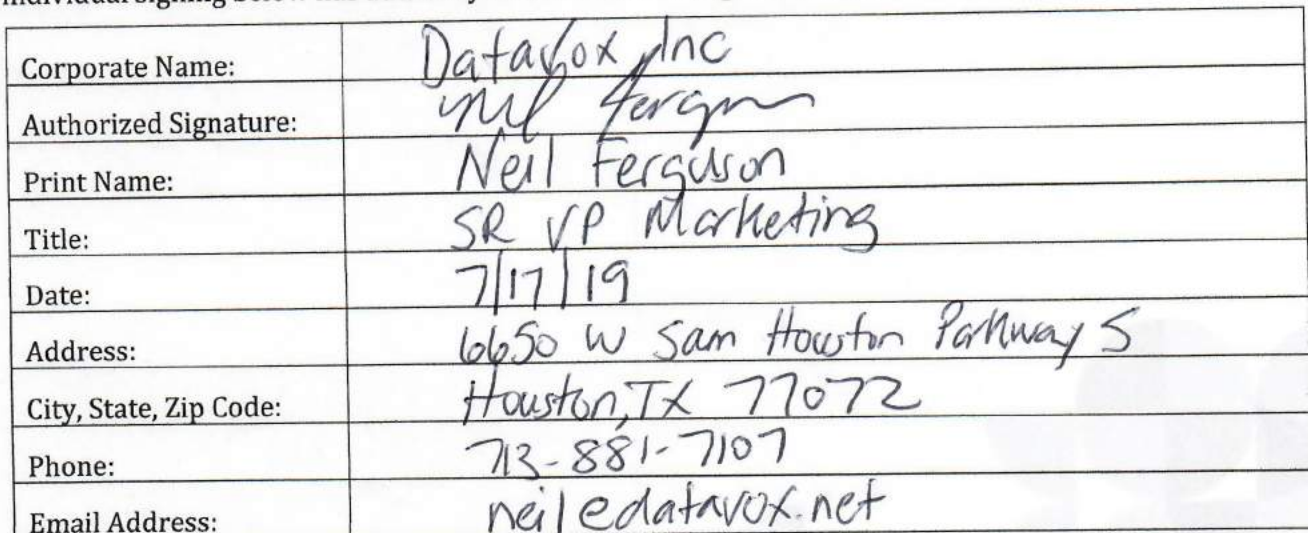 individual signing below has
Corporate Name: Datavox, Inc
Authorized Signature: Neil Ferguson
Print Name: Neil Ferguson
Title: SR VP Marketing
Date: 7/17/19
Address: 6650 W Sam Houston Parkway S
City, State, Zip Code: Houston, TX 77072
Phone: 713-881-7107
Email Address: neil@datavox.net